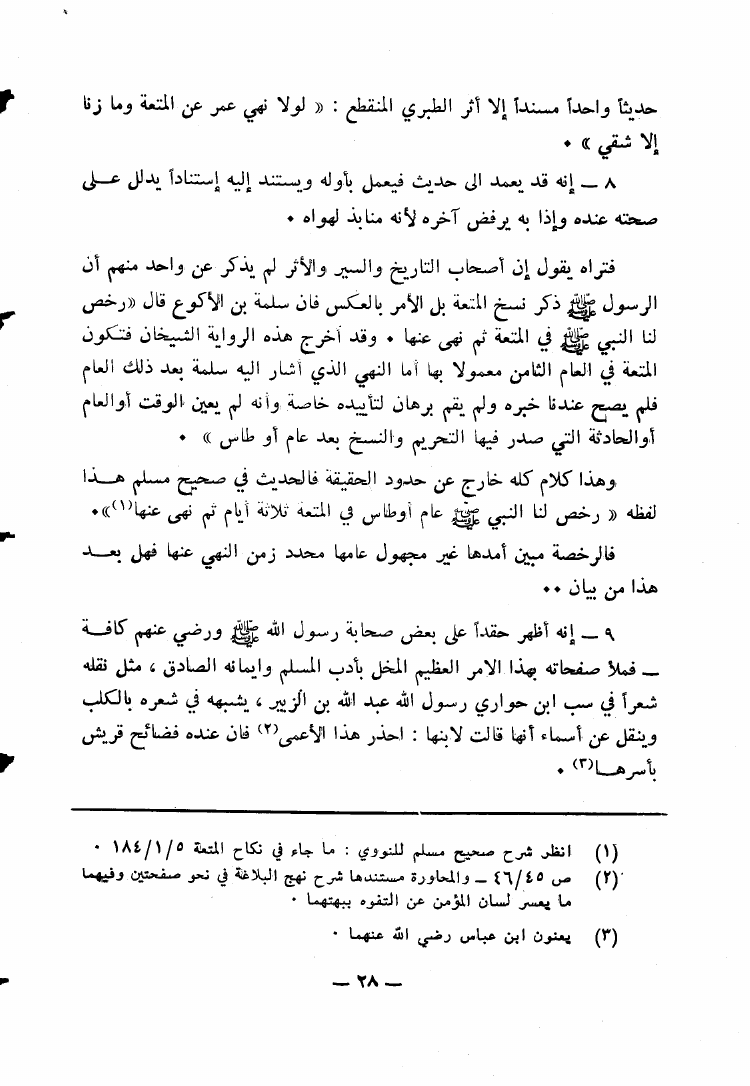 حديثاً واحداً مسنداً إلا أثر الطبري المنقطع : « لولا نهي عمر عن المتعة وما زنا
إلا شقي » .
٨ ــ إنه قد يعمد الى حديث فيعمل بأوله ويستند إليه إستناداً يدلل علـــى
صحته عنده وإذا به يرفض آخره لأنه منابذ لهواه .
فتراه يقول إن أصحاب التاريخ والسير والأثر لم يذكر عن واحد منهم أن
الرسول ﷺ ذكر نسخ المتعة بل الأمر بالعكس فان سلمة بن الأكوع قال «رخص
لنا النبي ﷺ في المتعة ثم نهى عنها . وقد أخرج هذه الرواية الشيخان فتكون
المتعة في العام الثامن معمولا بها أما النهي الذي أشار اليه سلمة بعد ذلك العام
فلم يصح عندنا خبره ولم يقم برهان لتأييده خاصة وأنه لم يعين الوقت أوالعام
أوالحادثة التي صدر فيها التحريم والنسخ بعد عام أو طاس » .
وهذا كلام كله خارج عن حدود الحقيقة فالحديث في صحيح مسلم هـــذا
لفظه « رخص لنا النبي ﷺ عام أوطاس في المتعة ثلاثة أيام ثم نهى عنها(١)».
فالرخصة مبين أمدها غير مجهول عامها محدد زمن النهي عنها فهل بعـــد
هذا من بيان ..
٩ ــ إنه أظهر حقداً على بعض صحابة رسول الله ﷺ ورضي عنهم كافـــة
ــ فملأ صفحاته بهذا الامر العظيم المخل بأدب المسلم وايمانه الصادق ، مثل نقله
شعراً في سب ابن حواري رسول الله عبد الله بن الزبير ، يشبهه في شعره بالكلب
وينقل عن أسماء أنها قالت لابنها : احذر هذا الأعمى(٢) فان عنده فضائح قريش
بأسرهـــا(٣) .
(١) انظر شرح صحيح مسلم للنووي : ما جاء في نكاح المتعة ١٨٤/١/٥ .
(٢) ص ٤٦/٤٥ ــ والمحاورة مستندها شرح نهج البلاغة في نحو صفحتين وفيهما
ما يعسر لسان المؤمن عن التفوه ببهتهما .
(٣) يعنون ابن عباس رضي الله عنهما .
ــ ٢٨ ــ